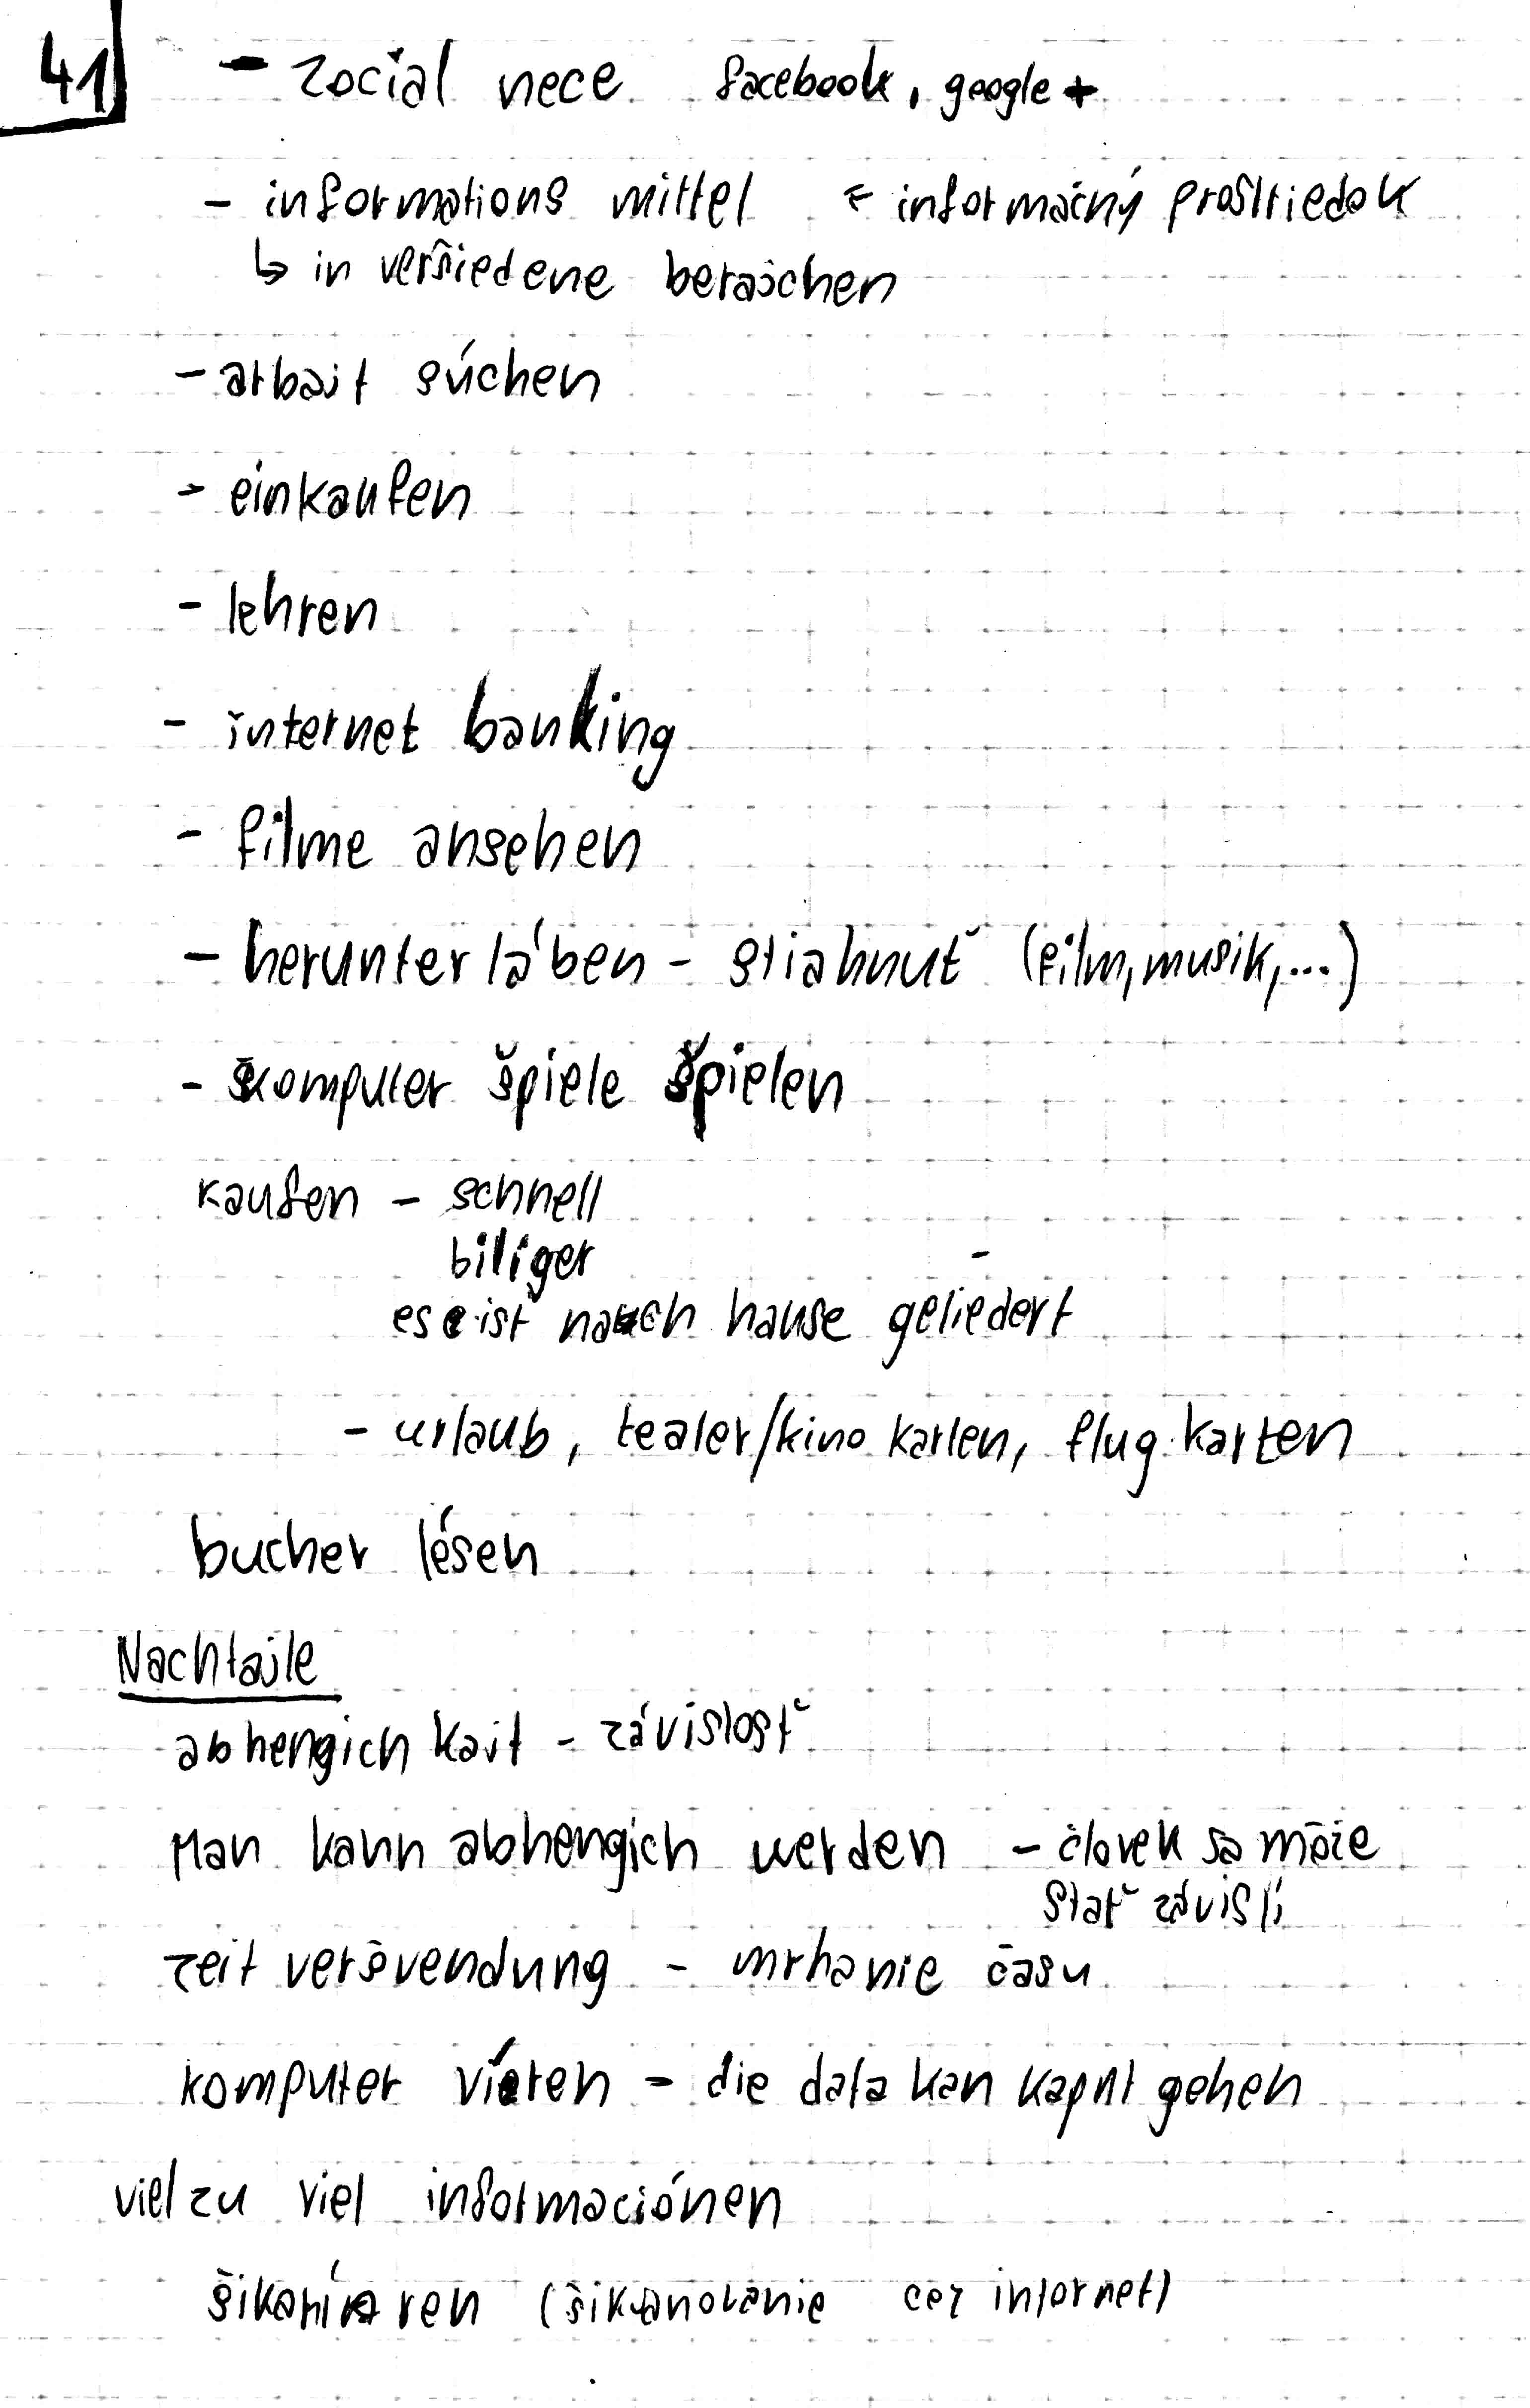 41
- social nece facebook, google +
- informations mittel = informačný prostriedok
↳ in veršiedene beraichen
- arbait súchen
- einkaufen
- lehren
- internet banking
- filme ansehen
- herunter láben - stiahnuť (film, musik, ...)
- komputer špiele špielen
kaufen - schnell
biliger
es ist nach hause geliedert
- urlaub, teater/kino karten, flug karten
bucher lésen
Nachtaile
abhengich kait - závislosť
Man kann abhengich werden - človek sa môže
stať závislí
zeit veršvendung - mrhanie času
komputer víren - die data kan kaput gehen
viel zu viel informaciónen
šikaníren (šikanovanie cez internet)